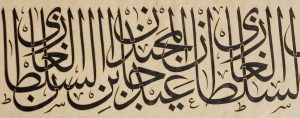 السلطان الغازى عبد المجيد خان بن السلطان الغازى